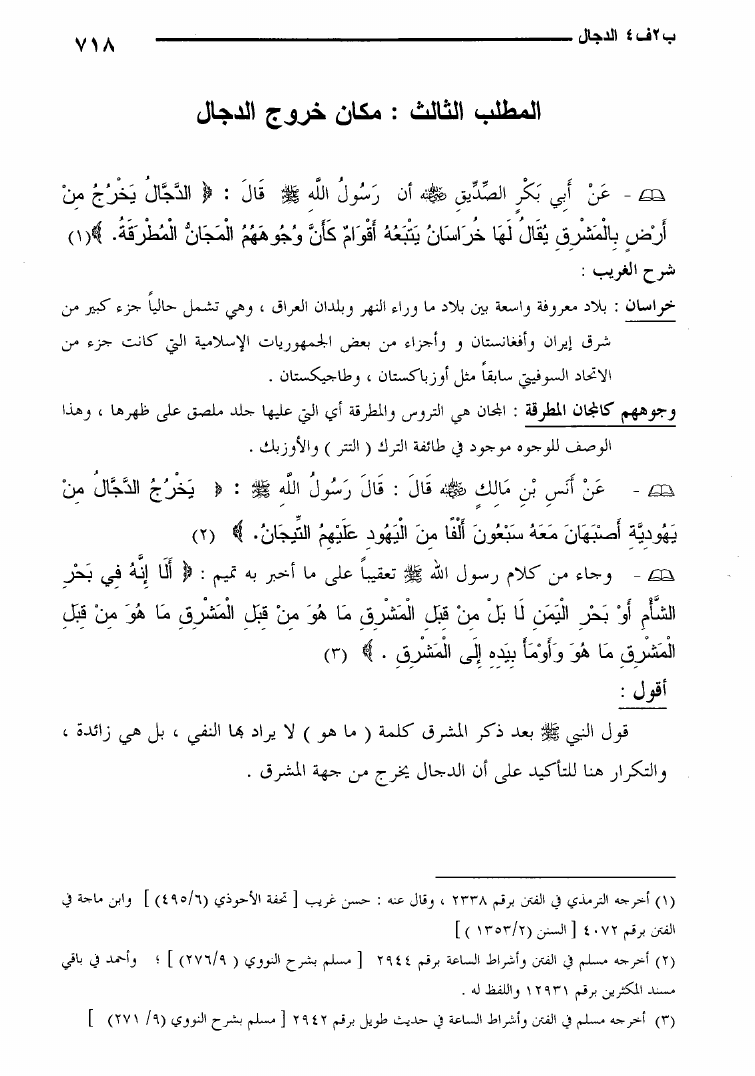 ب٢ف٤ الدجال
٧١٨
المطلب الثالث : مكان خروج الدجال
- عَنْ أَبِي بَكْرٍ الصِّدِّيقِ ﷺ أن رَسُولُ اللَّهِ ﷺ قَالَ : ﴿ الدَّجَّالُ يَخْرُجُ مِنْ
أَرْضٍ بِالْمَشْرِقِ يُقَالُ لَهَا خُرَاسَانُ يَتْبَعُهُ أَقْوَامٌ كَأَنَّ وُجُوهَهُمُ الْمَجَانُّ الْمُطْرَقَةُ. ﴾(١)
شرح الغريب :
خراسان : بلاد معروفة واسعة بين بلاد ما وراء النهر وبلدان العراق ، وهي تشمل حالياً جزء كبير من
شرق إيران وأفغانستان و وأجزاء من بعض الجمهوريات الإسلامية التي كانت جزء من
الاتحاد السوفيتي سابقاً مثل أوزباكستان ، وطاجيكستان .
وجوههم كالمجان المطرقة : المجان هي التروس والمطرقة أي التي عليها جلد ملصق على ظهرها ، وهذا
الوصف للوجوه موجود في طائفة الترك ( التتر ) والأوزبك .
- عَنْ أَنَسِ بْنِ مَالِكٍ ﷺ قَالَ : قَالَ رَسُولُ اللَّهِ ﷺ : ﴿ يَخْرُجُ الدَّجَّالُ مِنْ
يَهُودِيَّةِ أَصْبَهَانَ مَعَهُ سَبْعُونَ أَلْفًا مِنَ الْيَهُودِ عَلَيْهِمُ التِّيجَانُ. ﴾ (٢)
- وجاء من كلام رسول الله ﷺ تعقيباً على ما أخبر به تميم : ﴿ أَلَا إِنَّهُ فِي بَحْرِ
الشَّأْمِ أَوْ بَحْرِ الْيَمَنِ لَا بَلْ مِنْ قِبَلِ الْمَشْرِقِ مَا هُوَ مِنْ قِبَلِ الْمَشْرِقِ مَا هُوَ مِنْ قِبَلِ
الْمَشْرِقِ مَا هُوَ وَأَوْمَأَ بِيَدِهِ إِلَى الْمَشْرِقِ . ﴾ (٣)
أقول :
قول النبي ﷺ بعد ذكر المشرق كلمة ( ما هو ) لا يراد بها النفي ، بل هي زائدة ،
والتكرار هنا للتأكيد على أن الدجال يخرج من جهة المشرق .
(١) أخرجه الترمذي في الفتن برقم ٢٣٣٨ ، وقال عنه : حسن غريب [ تحفة الأحوذي (٤٩٥/٦) ] وابن ماجة في
الفتن برقم ٤٠٧٢ [ السنن (١٣٥٣/٢ ) [
(٢) أخرجه مسلم في الفتن وأشراط الساعة برقم ٢٩٤٤ [ مسلم بشرح النووي ( ٢٧٦/٩) ] ؛ وأحمد في باقي
مسند المكثرين برقم ١٢٩٣١ واللفظ له .
(٣) أخرجه مسلم في الفتن وأشراط الساعة في حديث طويل برقم ٢٩٤٢ [ مسلم بشرح النووي (٩/ ٢٧١) ]